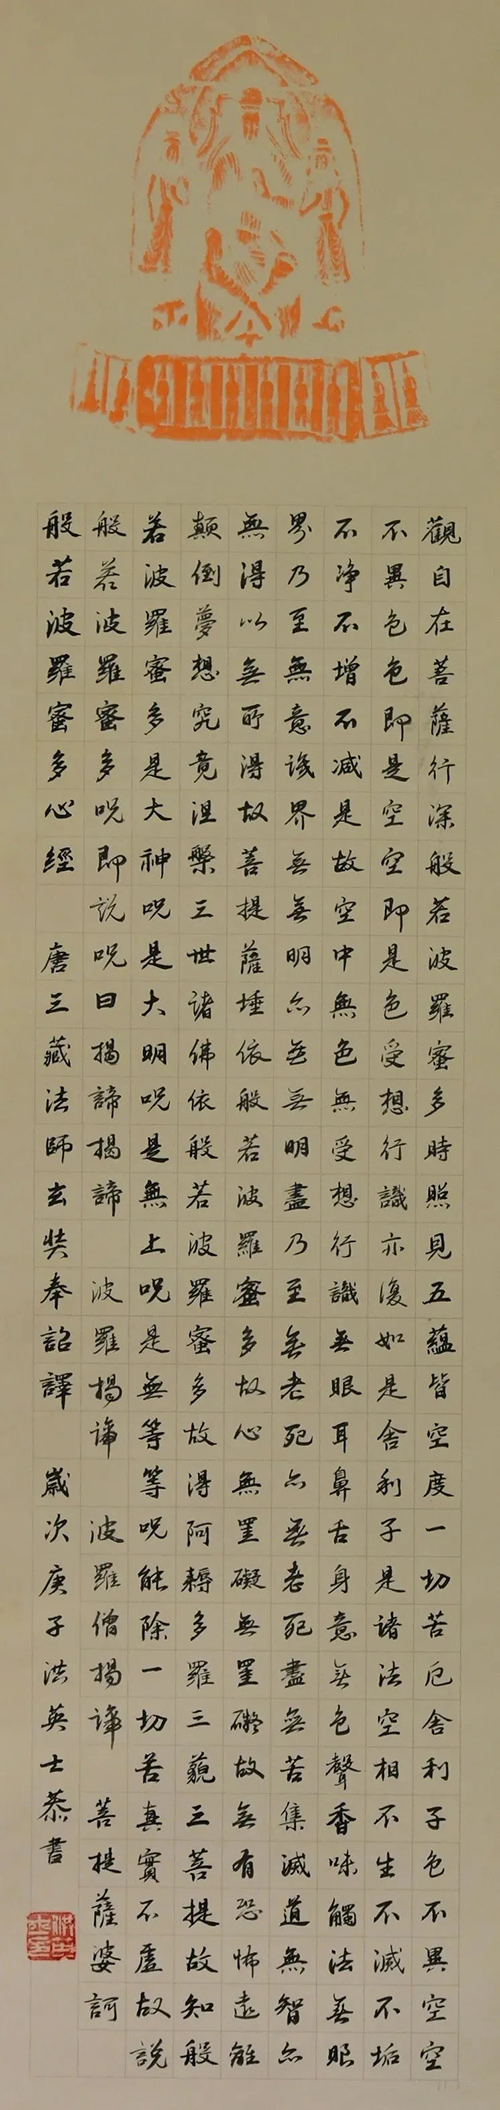 觀自在菩薩行深般若波羅蜜多時照見五蘊皆空度一切苦厄舍利子色不異空空
不異色色即是空空即是色受想行識亦復如是舍利子是諸法空相不生不滅不垢
不淨不增不減是故空中無色無受想行識無眼耳鼻舌身意無色聲香味觸法無眼
界乃至無意識界無無明亦無無明盡乃至無老死亦無老死盡無苦集滅道無智亦
無得以無所得故菩提薩埵依般若波羅蜜多故心無罣礙無罣礙故無有恐怖遠離
顛倒夢想究竟涅槃三世諸佛依般若波羅蜜多故得阿耨多羅三藐三菩提故知般
若波羅蜜多是大神呪是大明呪是無上呪是無等等呪能除一切苦真實不虛故說
般若波羅蜜多呪即說呪曰揭諦揭諦 波羅揭諦 波羅僧揭諦 菩提薩婆訶
般若波羅蜜多心經 唐三藏法師玄奘奉詔譯 歲次庚子洪英士恭書